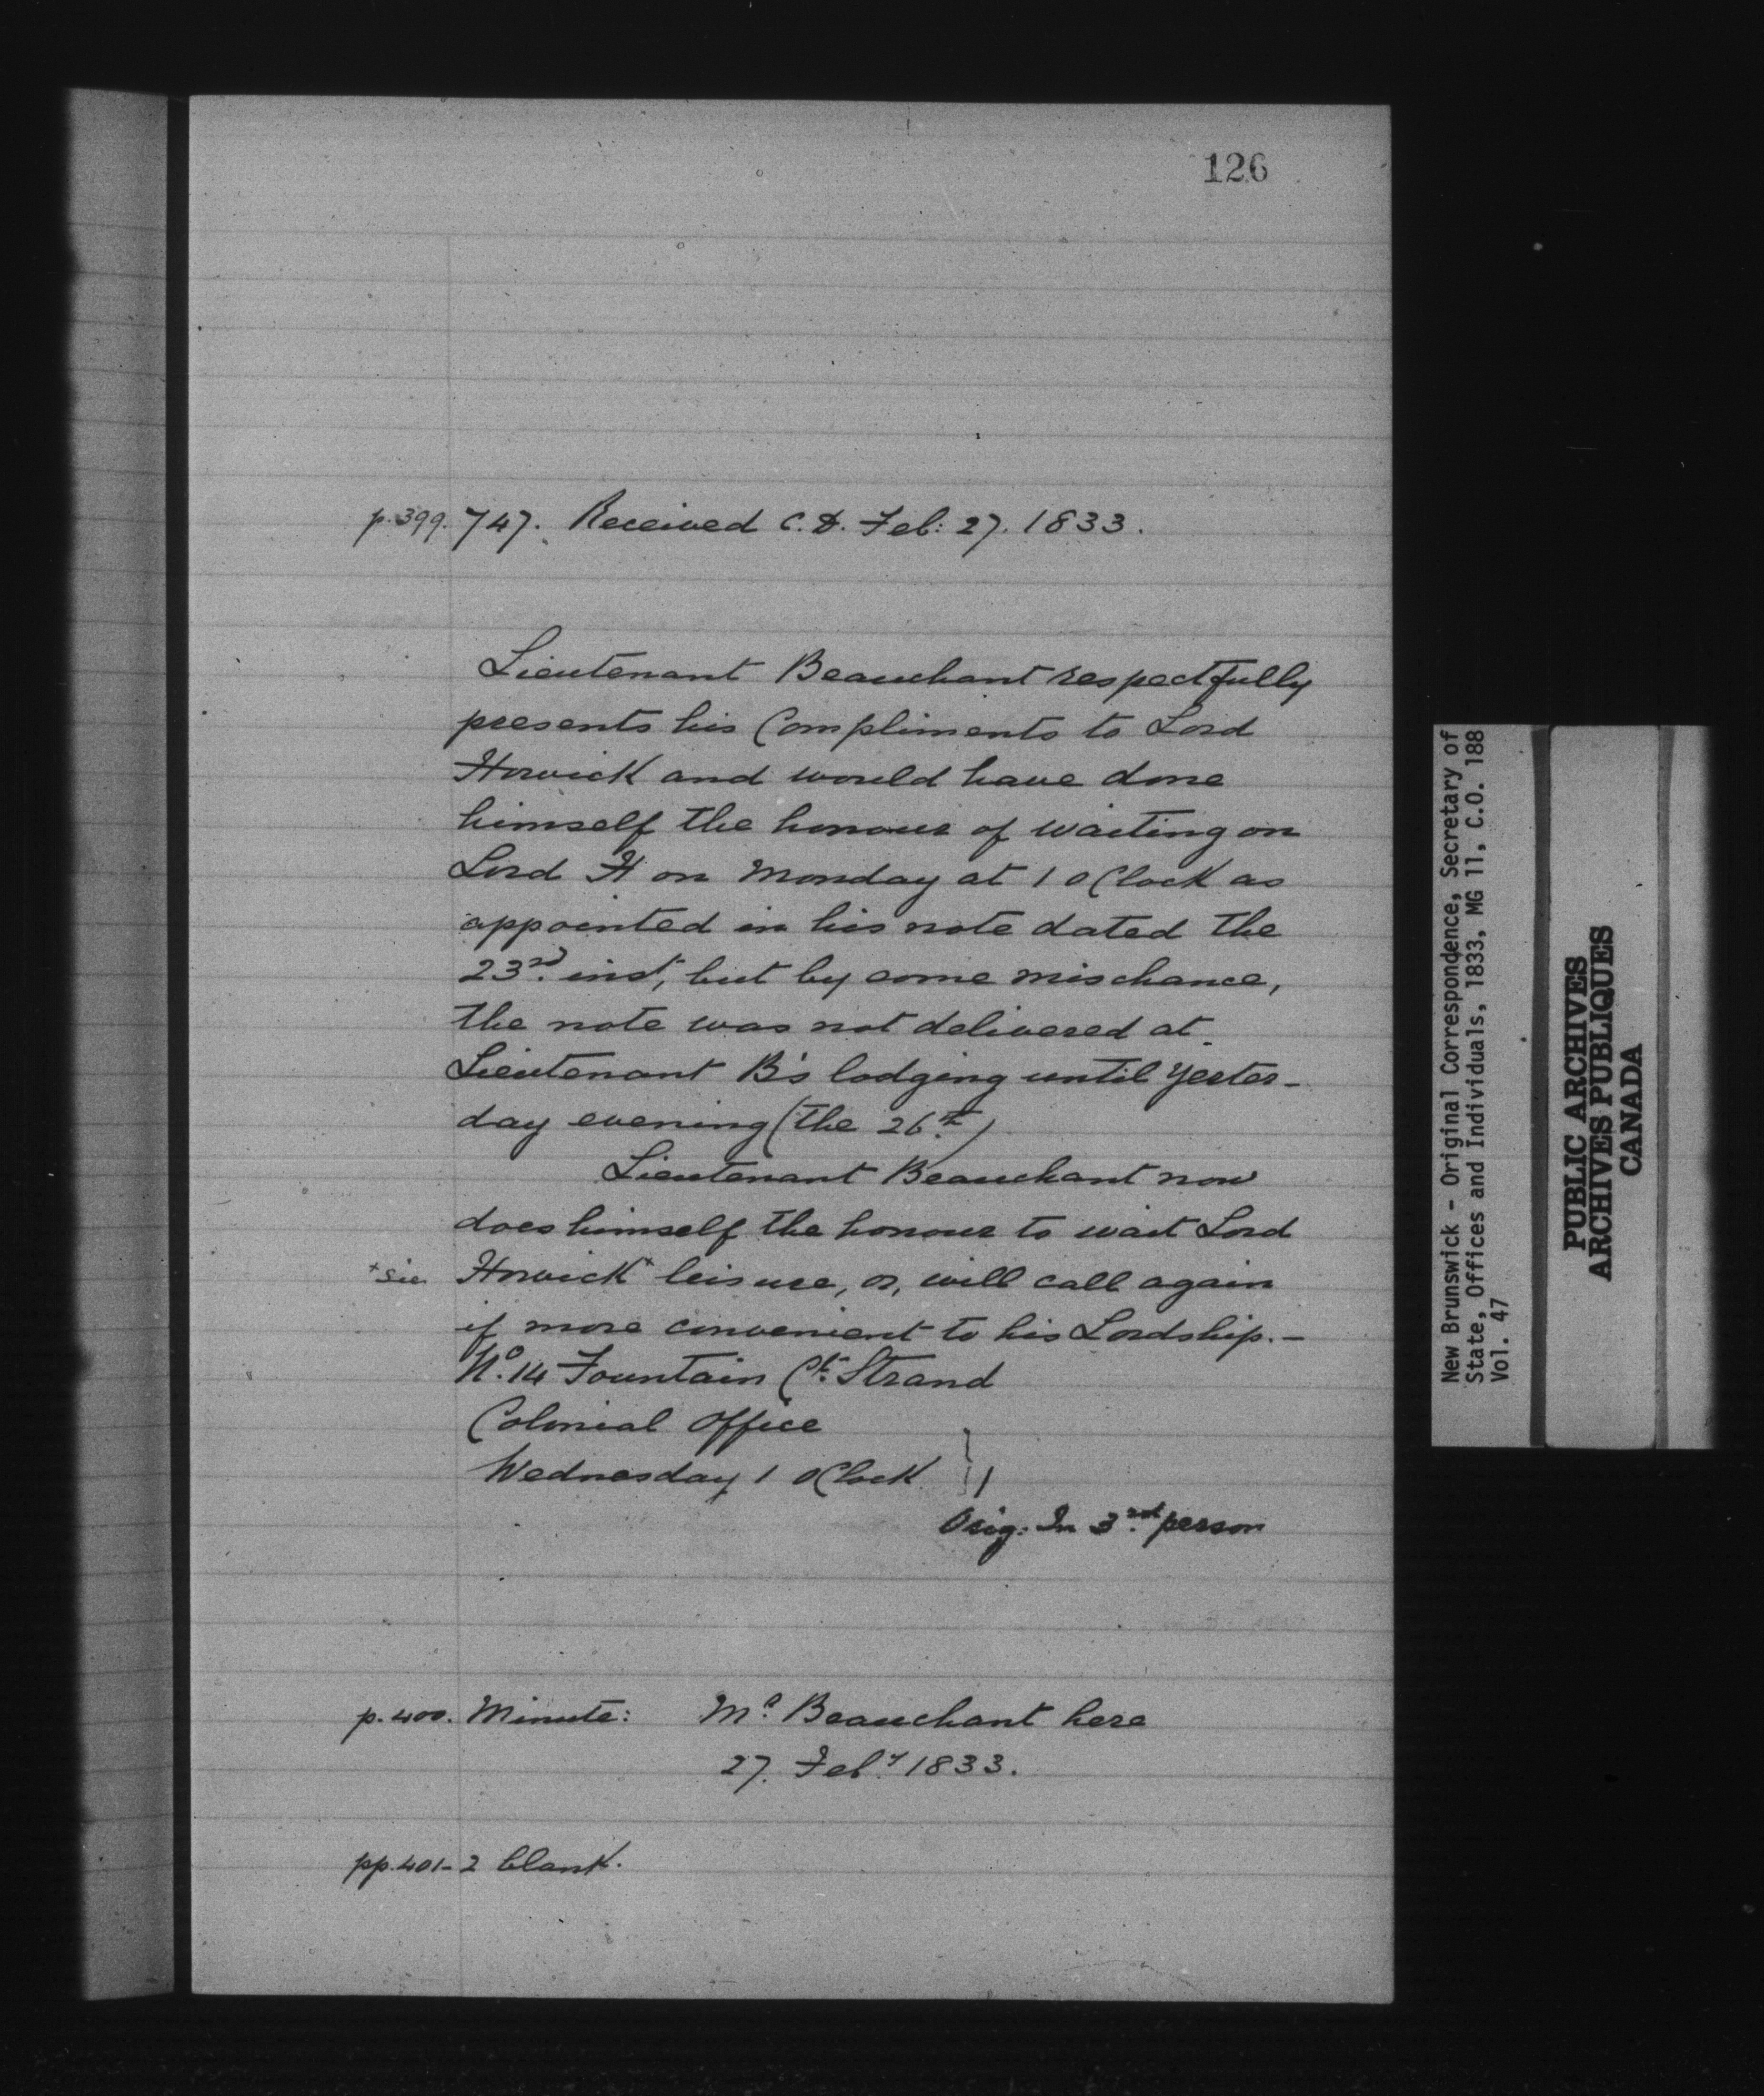 126
p.399. 747. Received C.D. Feb: 27. 1833.
Lieutenant Beauchant respectfully
presents his Compliments to Lord
Howick and would have done
himself the honour of waiting on
Lord H on Monday at 1 oClock as
appointed in his note dated the
23rd. inst, but by some mischance,
the note was not delivered at
Lieutenant B's lodging until Yester-
day evening (the 26th)
Lieutenant Beauchant now
does himself the honour to wait Lord
+sic Howick+ leisure, or, will call again
if more convenient to his Lordship.-
No. 14 Fountain Ct. Strand
Colonial Office
Wednesday 1 oClock }
Orig: In 3rd person
p.400. Minute: Mr. Beauchant here
27. Feby 1833.
pp.401-2 blank.
New Brunswick - Original Correspondence, Secretary of
State, Offices and Individuals, 1833, MG 11, C.O. 188
Vol. 47
PUBLIC ARCHIVES
ARCHIVES PUBLIQUES
CANADA